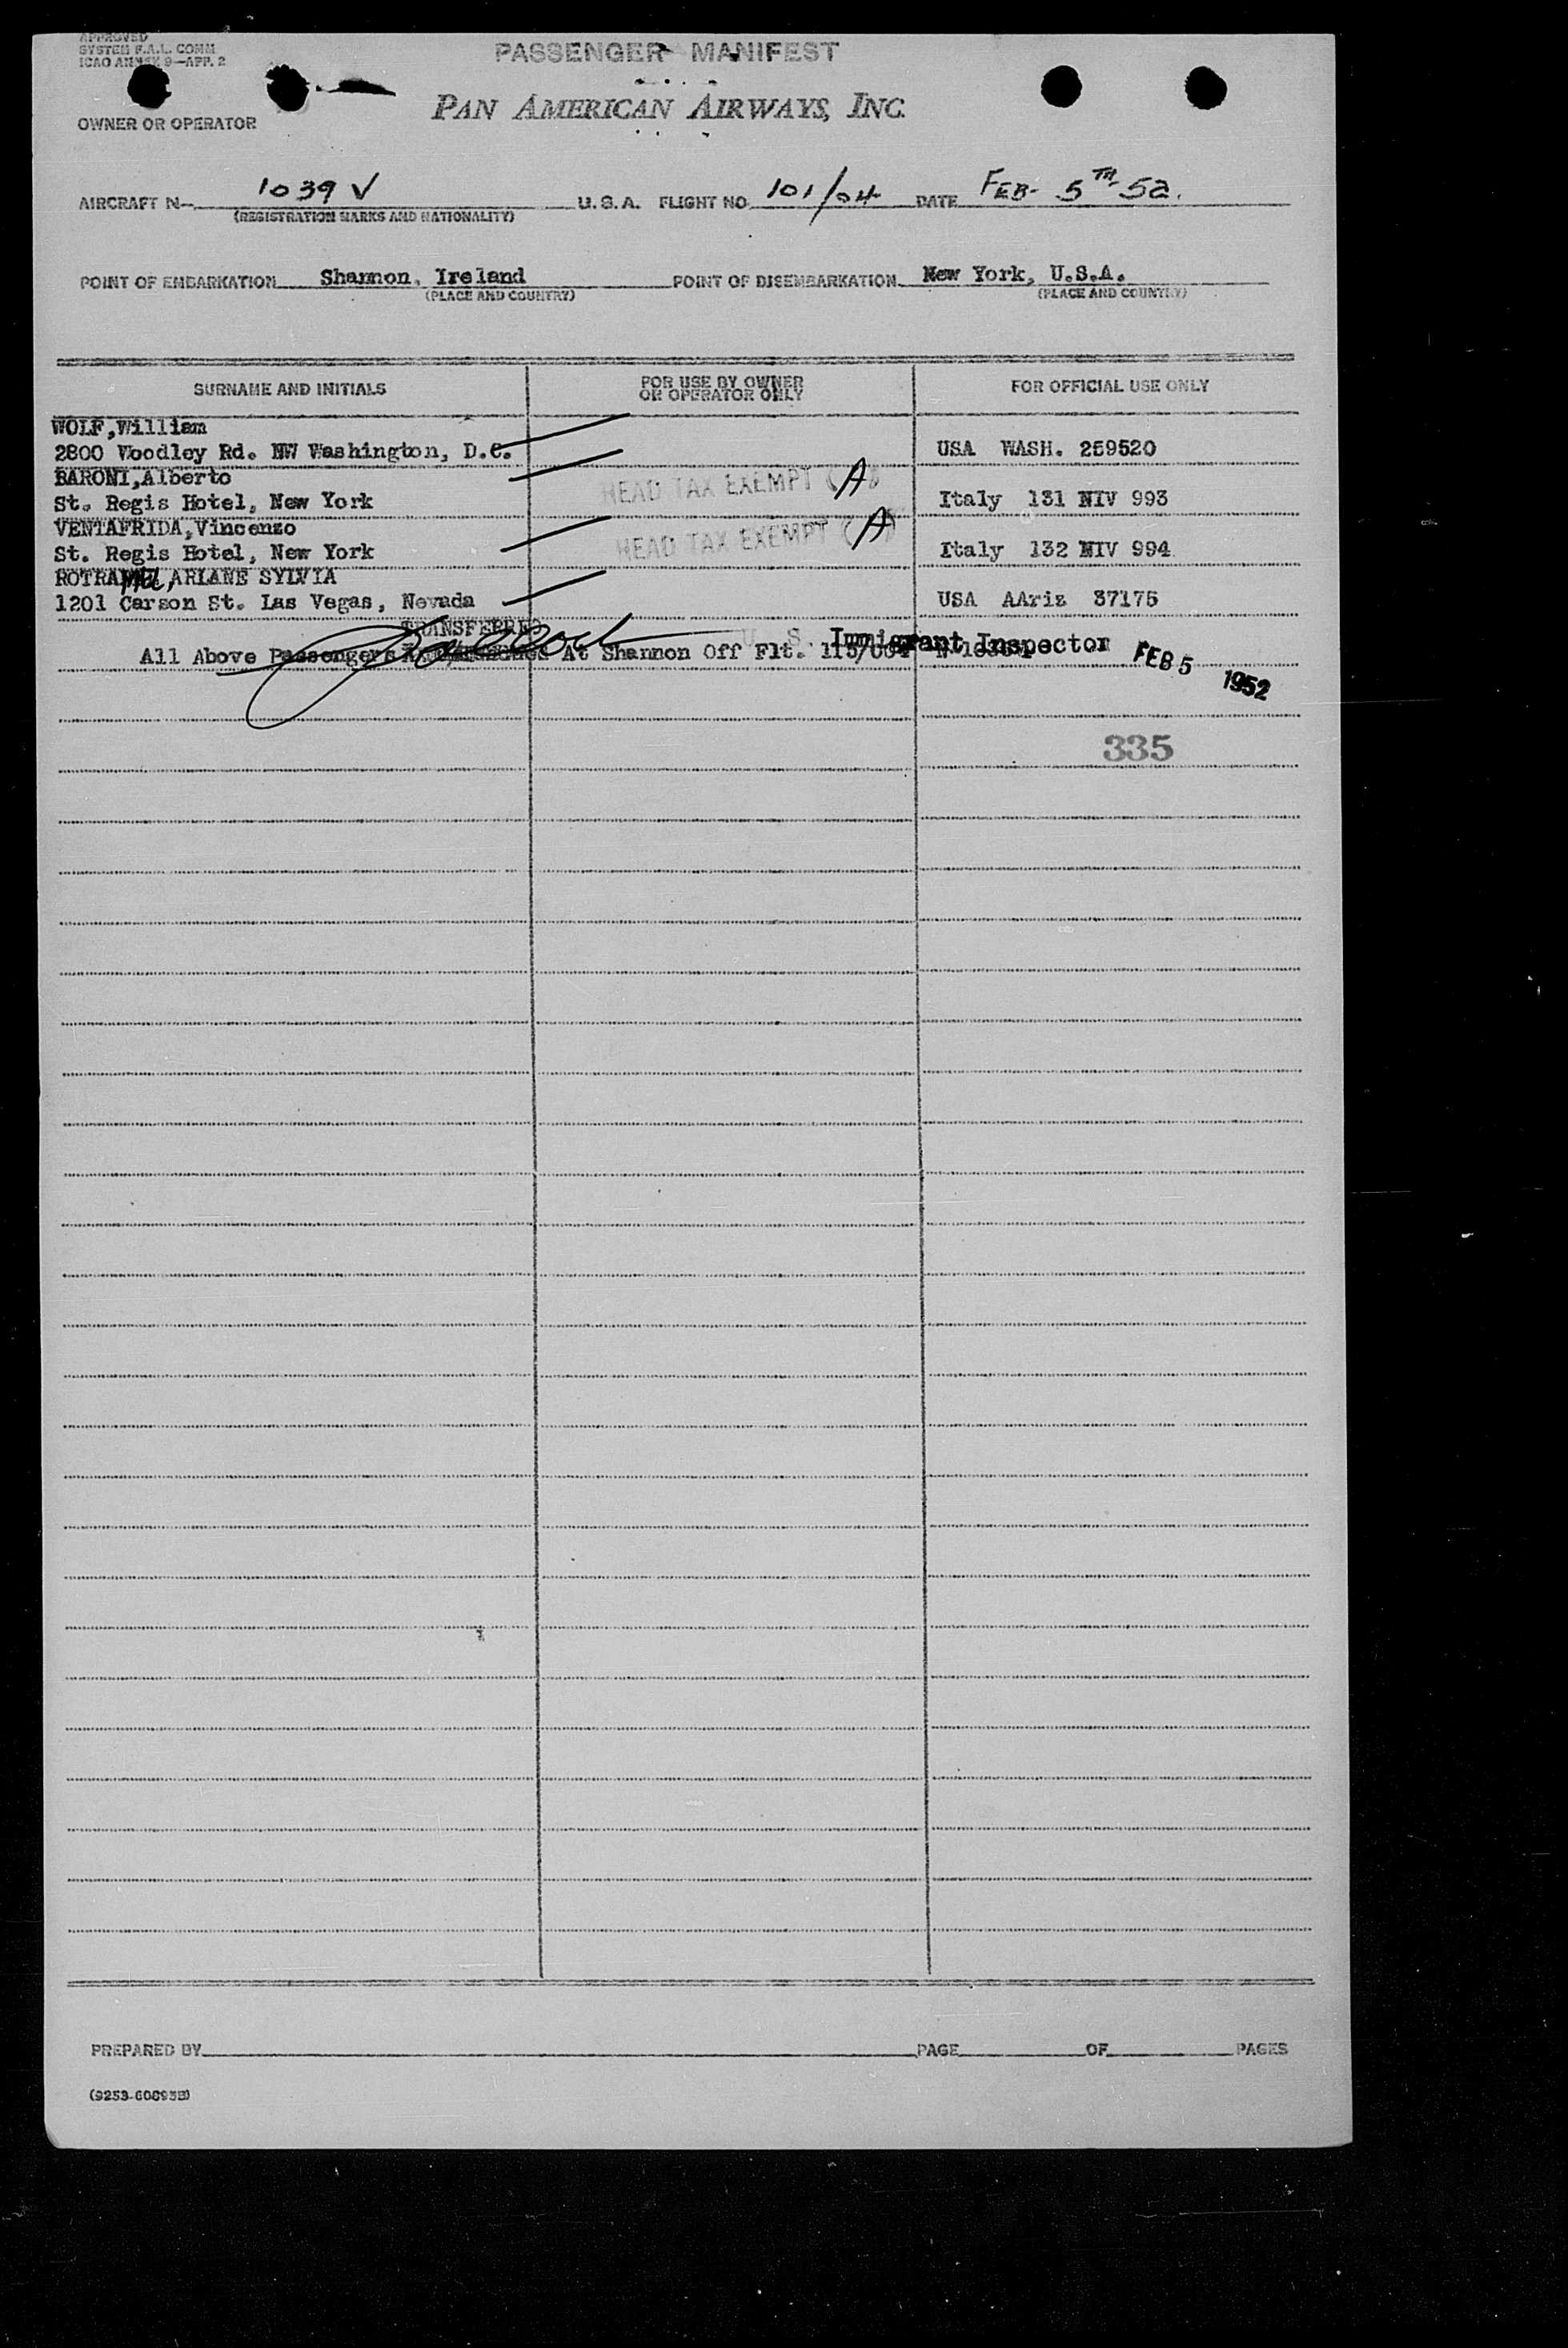 APPROVED
SYSTEM F.A.L. COMM
ICAO ANNEX 9—APP. 2
PASSENGER MANIFEST
PAN AMERICAN AIRWAYS, INC.
OWNER OR OPERATOR
AIRCRAFT N— 1039 V U. S. A. FLIGHT NO 101/04 DATE FEB- 5TH-52.
(REGISTRATION MARKS AND NATIONALITY)
POINT OF EMBARKATION Shannon, Ireland POINT OF DISEMBARKATION New York, U.S.A.
(PLACE AND COUNTRY) (PLACE AND COUNTRY)
SURNAME AND INITIALS FOR USE BY OWNER OR OPERATOR ONLY FOR OFFICIAL USE ONLY
WOLF,William
2800 Woodley Rd. NW Washington, D.C. USA WASH. 259520
BARONI,Alberto HEAD TAX EXEMPT (A)
St. Regis Hotel, New York Italy 131 NIV 993
VENTAFRIDA,Vincenzo HEAD TAX EXEMPT (A)
St. Regis Hotel, New York Italy 132 NIV 994
ROTRAMEL, ARLANE SYLVIA
1201 Carson St. Las Vegas, Nevada USA AAriz 37175
TRANSFERRED
U. S. Immigrant Inspector
All Above Passengers At Shannon Off Flt.
FEB 5 1952
335
PREPARED BY PAGE OF PAGES